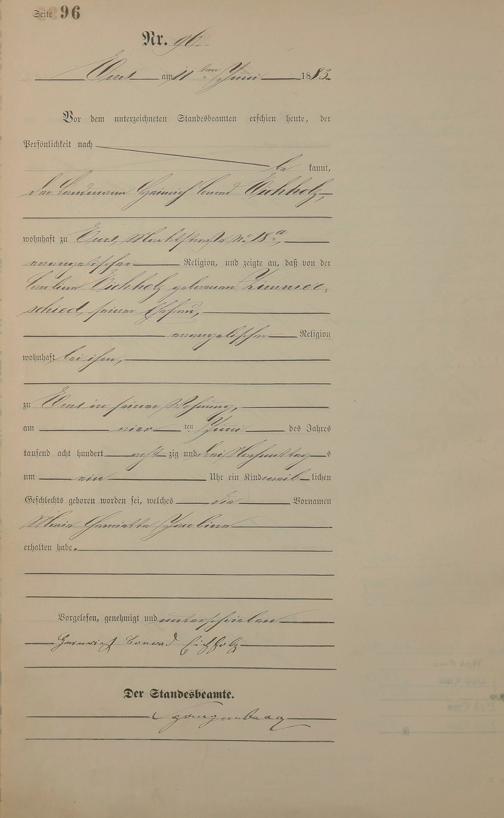 Seite 96
Nr. 96.
Ems am 11ten Juni 1883.
Vor dem unterzeichneten Standesbeamten erschien heute, der
Persönlichkeit nach
be kannt,
der Heinrich Conrad Eichholz,
wohnhaft zu Ems, No 18a,
evangelischer Religion, und zeigte an, daß von der
Eichholz geborenen Zimmer¬
schied, seiner Ehefrau,
evangelischer Religion
wohnhaft bei ihm,
zu Ems in seiner Wohnung,
am vier ten Juni des Jahres
tausend acht hundert acht zig und drei Nachmittag s
um ein Uhr ein Kind weib lichen
Geschlechts geboren worden sei, welches die Vornamen
Maria Henriette
erhalten habe.
Vorgelesen, genehmigt und unterschrieben
Heinrich Conrad Eichholz
Der Standesbeamte.